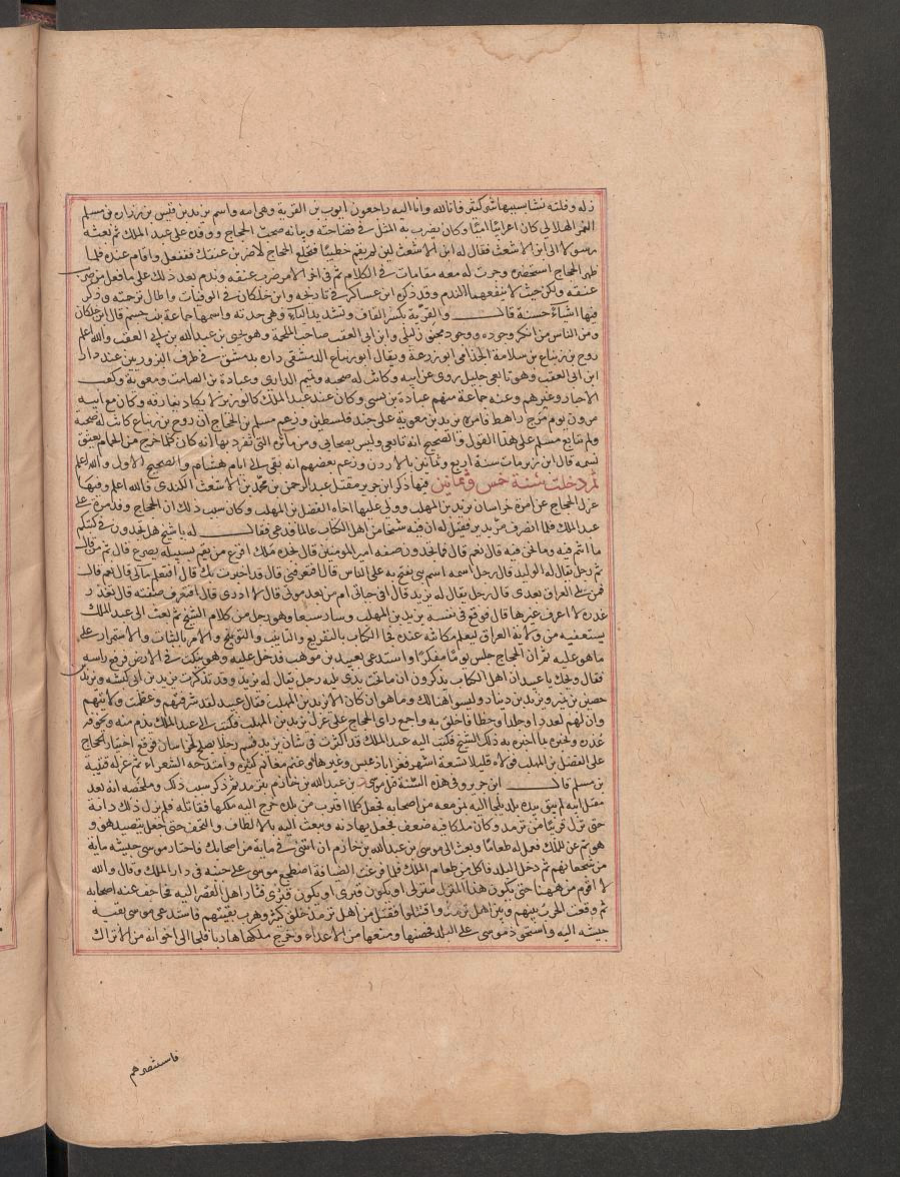 زلة وفلتة نشا بسببها شر كثير فانا لله وانا اليه راجعون ايوب بن القرية وهى امه واسم بن يزيد بن قيس بن زرارة بن مسلم
النمرى الهلالى كان اعرابيا اميا وكان يضرب به المثل فى فصاحته وبيانه صحب الحجاج ووفد على عبد الملك ثم بعثه
رسولا الى ابن الاشعث فقال له ابن الاشعث لين لم تقم خطيبا فتخلع الحجاج لاضربن عنقك ففعل واقام عنده فلما
ظهر الحجاج استحضره وجرت له معه مقامات فى الكلام ثم فى اخر الامر ضرب عنقه وندم بعد ذلك على ما فعل من ضرب
عنقه ولكن حيث لا ينفعهما الندم وقد ذكره ابن عساكر فى تاريخه وابن خلكان فى الوفيات واطال ترجمته وذكر
فيها اشياء حسنة قال والقرية بكسر القاف وتشديد الياء وهى جدته واسمها جماعة بنت جشم قال ابن خلكان
ومن الناس من انكر وجوده ووجود مجنون ليلى وابن ابى العقب صاحب الملحمة وهو يحيى بن عبد الله بن ابى العقب والله اعلم
روح بن زنباع بن سلامة الجذامى ابو زرعة ويقال ابو زنباع الدمشقى داره بدمشق فى طرف البزوريين عند دار
ابن ابى العقب وهو تابعى جليل روى عن ابيه وكانت له صحبة وتميم الدارى وعبادة بن الصامت ومعوية وكعب
الاحبار وغيرهم وعنه جماعة منهم عبادة بن نسى وكان عند عبد الملك كالوزير لا يكاد يفارقه وكان مع ابيه
مرون يوم مرج راهط فامره يزيد بن معوية على جند فلسطين وزعم مسلم بن الحجاج ان روح بن زنباع كانت له صحبة
ولم يتابع مسلم على هذا القول والصحيح انه تابعى وليس بصحابى ومن ماثره التى تفرد بها انه كان كلما خرج من الحمام يعتق
نسمة قال ابن زبر مات سنة اربع وثمانين بالاردن وزعم بعضهم انه بقى الى ايام هشام والصحيح الاول والله اعلم
ثم دخلت سنة خمس وثمانين فيها ذكر ابن جرير مقتل عبد الرحمن بن محمد بن الاشعث الكندى فالله اعلم وفيها
عزل الحجاج عن امرة خراسان يزيد بن المهلب وولى عليها اخاه المفضل بن المهلب وكان سبب ذلك ان الحجاج وفد مرة على
عبد الملك فلما انصرف مر بدير فقيل له ان فيه شيخا من اهل الكتاب عالما فدعى فقال له يا شيخ هل تجدون فى كتبكم
ما انتم فيه وما نحن فيه قال نعم قال فما تجدون صفة امير المومنين قال نجده ملك اقرع من يقم بسبيله يصرع قال ثم من قال
ثم رجل يقال له الوليد قال رجل اسمه اسم نبى يفتح به على الناس قال افتعرفنى قال قد اخبرت بك قال افتعلم مالى قال نعم قال
فمن يلى العراق بعدى قال رجل يقال له يزيد قال افى حياتى ام من بعد موتى قال لا ادرى قال افتعرف صفته قال يغدر
غدرة لا اعرف غيرها قال فوقع فى نفسه يزيد بن المهلب وسار سبعا وهو رجل من كلام الشيخ ثم بعث الى عبد الملك
يستعفيه من ولاية العراق ليعلم مكانته عنده فجا الكتاب بالتقريع والتانيب والتوبيخ والامر بالثبات والاستمرار على
ما هو عليه ثم ان الحجاج جلس يوما مفكرا واستدعى بعبيد بن موهب فدخل عليه وهو ينكت فى الارض فرفع راسه
فقال ويحك يا عبيد ان اهل الكتاب يذكرون ان ما تحت يدى يليه رجل يقال له يزيد وقد تذكرت يزيد بن ابى كبشة ويزيد
حصين بن نمير ويزيد بن دينار وليسوا هنالك وما هو ان كان الا يزيد بن المهلب فقال عبيد لقد شرفتهم وعظمت ولايتهم
وان لهم لعددا وجلدا وحظا فاخلق به واجمع راى الحجاج على عزل يزيد بن المهلب فكتب الى عبد الملك يذم منه ويخوفه
غدره ويخبره بما اخبره به ذلك الشيخ فكتب اليه عبد الملك قد اكثرت فى شان يزيد فسم رجلا يصلح لخراسان فوقع اختيار الحجاج
على المفضل بن المهلب فولاه قليلا تسعة اشهر فغزا باذغيس وغيرها وغنم مغانم كثيرة وامتدحه الشعراء ثم عزله قتيبة
بن مسلم قال ابن جرير وفى هذه السنة قتل موسى بن عبد الله بن خازم بترمذ ثم ذكر سبب ذلك وملخصه انه بعد
مقتل ابيه لم يبق بيده بلد يلجا اليه بمن معه من اصحابه فجعل كلما اقترب من بلدة خرج اليه ملكها فقاتله فلم يزل ذلك دابه
حتى نزل قريبا من ترمذ وكان ملكها فيه ضعف فجعل يهادنه ويبعث اليه بالالطاف والتحف حتى جعل يتصيد هو و
هو ثم عن للملك فعمل له طعاما وبعث الى موسى بن عبد الله بن خازم ان ائتنى فى ماية من اصحابك فاختار موسى جيشه ماية
من شجعانهم ثم دخل البلد فاكل من طعام الملك فلما فرغت الضيافة اضطجع موسى على جنبه فى دار الملك وقال والله
لا اقوم من ههنا حتى يكون هذا المنزل منزلى او يكون قبرى فثار اهل القصر اليه فحاجف عنه اصحابه
ثم وقعت الحرب بينهم وبين اهل ترمذ واقتتلوا فقتل من اهل ترمذ خلق كثير وهرب بقيتهم فاستدعى موسى بقية
جيشه اليه واستحوذ موسى على البلد فحصنها ومنعها من الاعداء وخرج ملكها هاربا فلجا الى اخوانه من الاتراك
فاستنصرهم